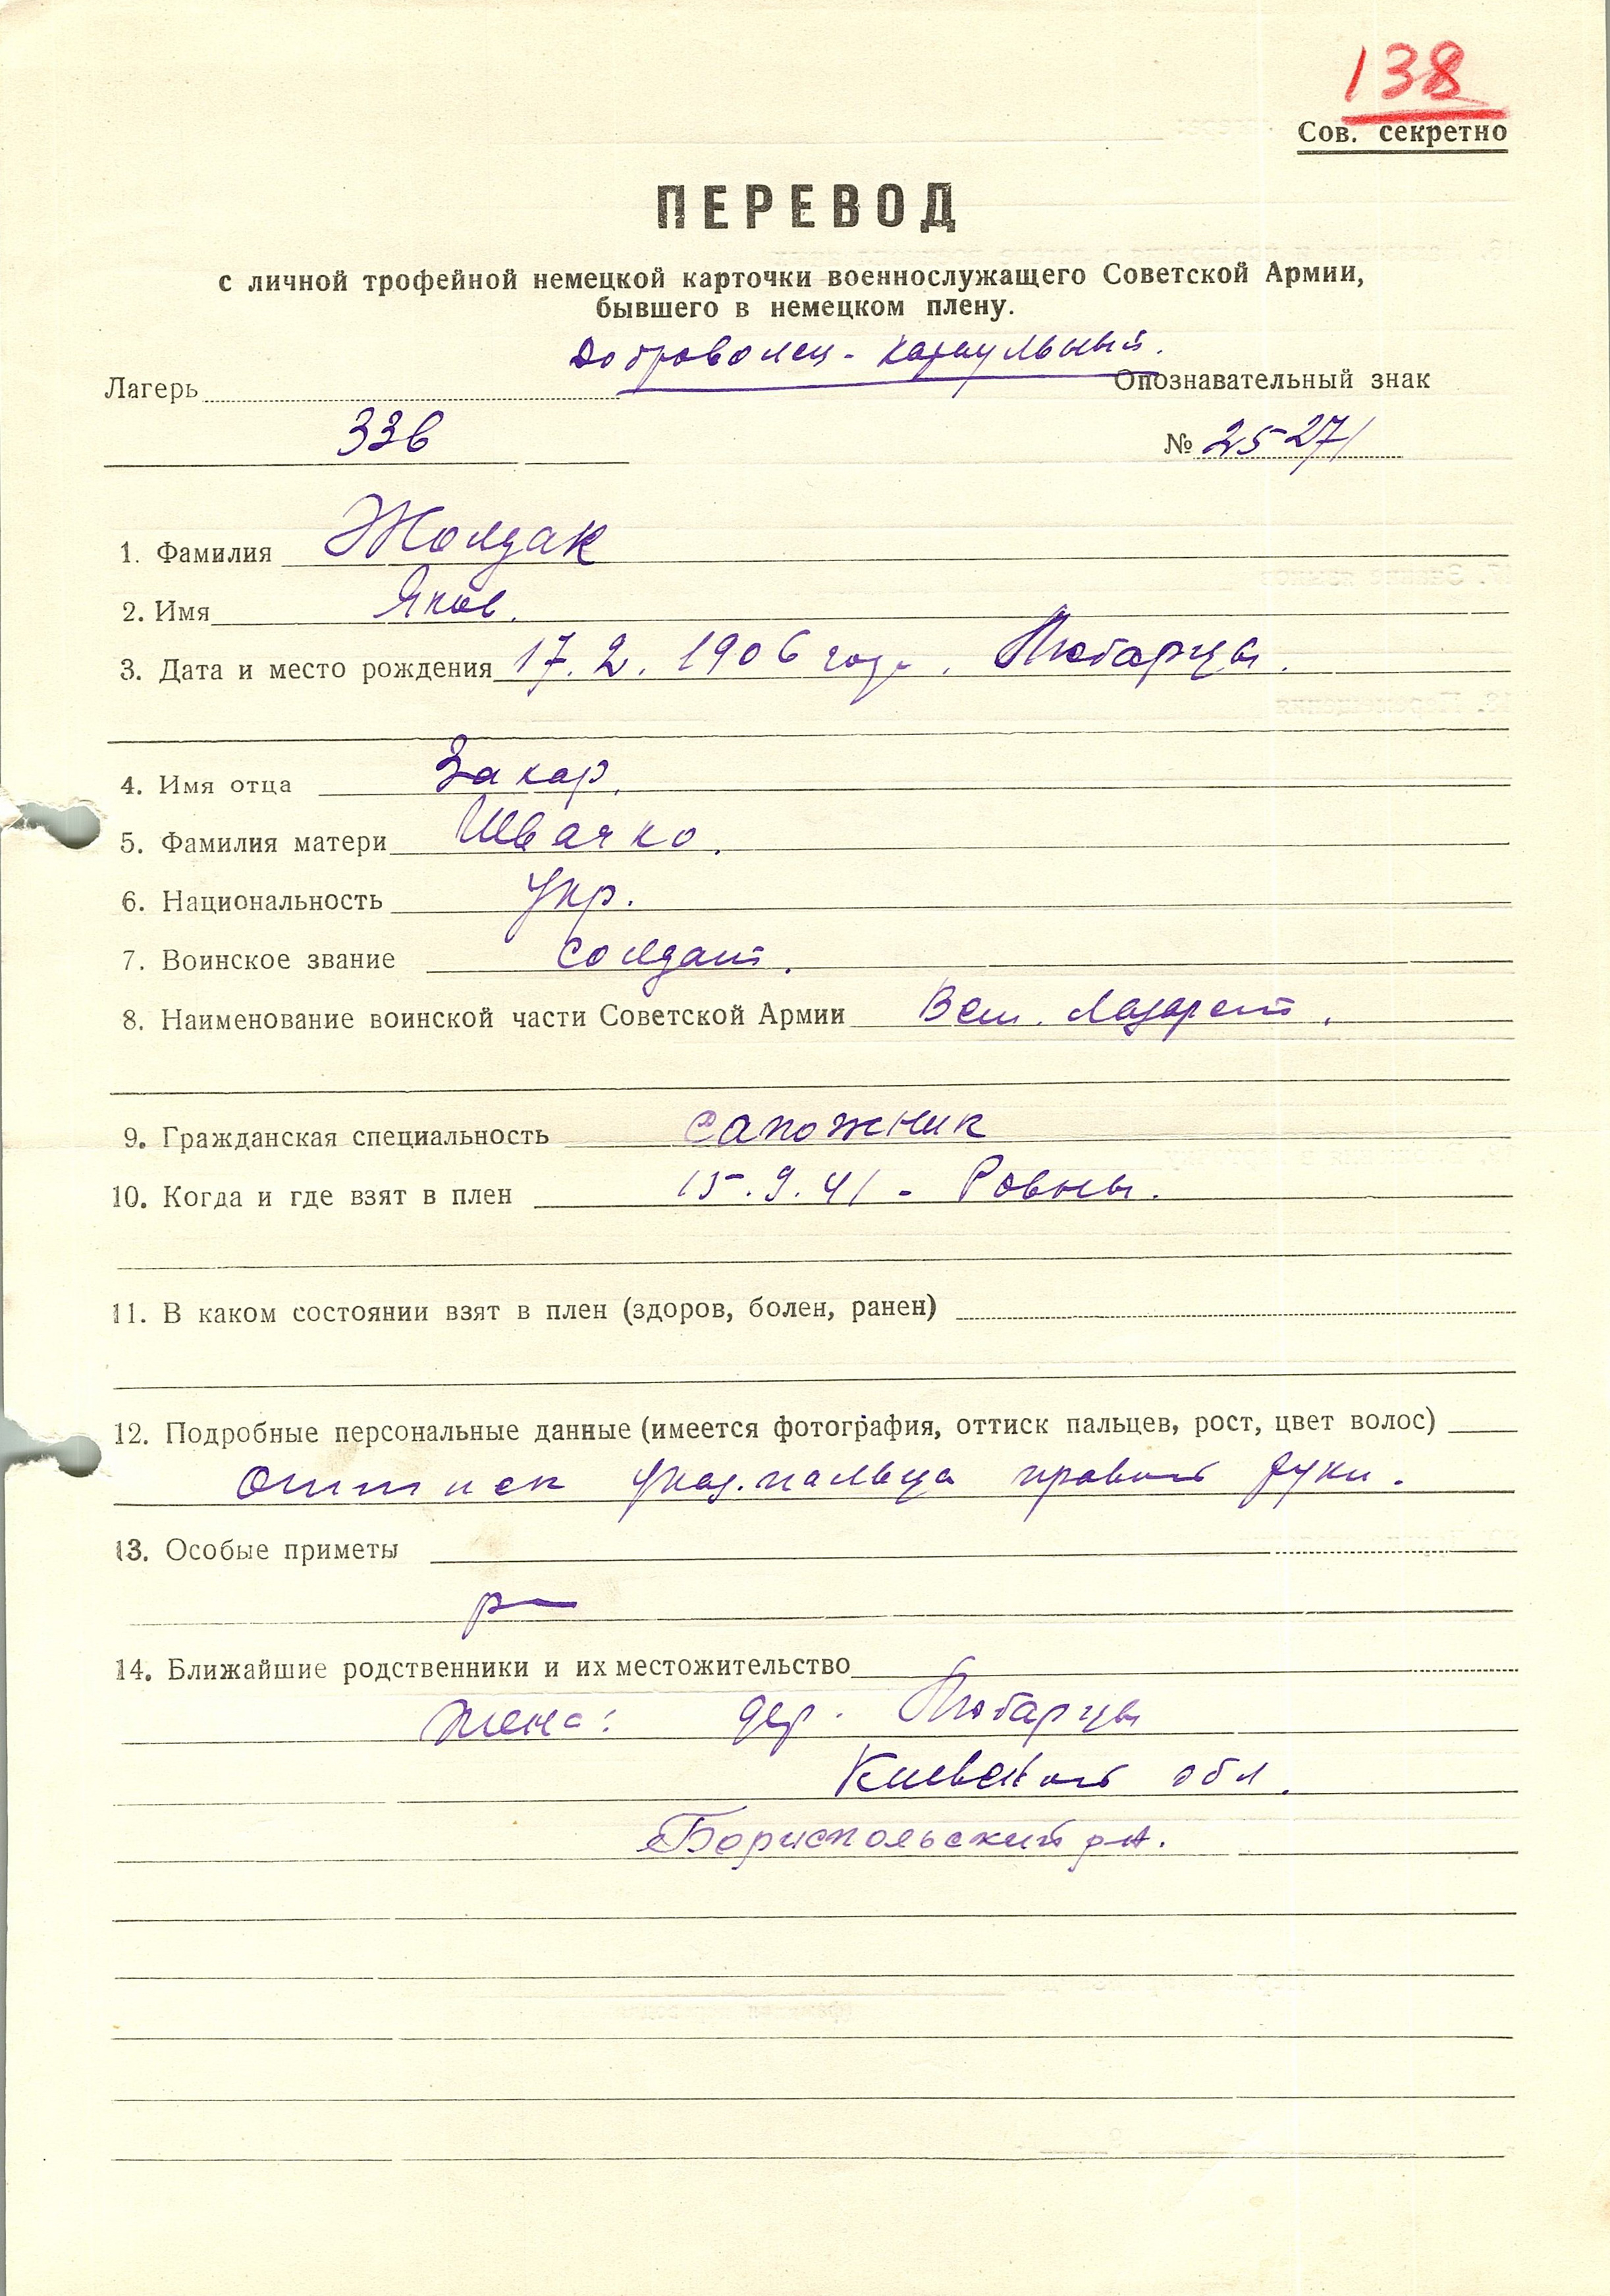 138
Сов. секретно
ПЕРЕВОД
с личной трофейной немецкой карточки военнослужащего Советской Армии,
бывшего в немецком плену.
Доброволец - караульный.
Лагерь Опознавательный знак
336 № 25271
1. Фамилия Жолдак
2. Имя Яков.
3. Дата и место рождения 17.2.1906 года. Любарцы.
4. Имя отца Захар.
5. Фамилия матери Швачко.
6. Национальность Укр.
7. Воинское звание солдат.
8. Наименование воинской части Советской Армии Вет. Лазарет.
9. Гражданская специальность сапожник
10. Когда и где взят в плен 15.9.41 - Ровны.
11. В каком состоянии взят в плен (здоров, болен, ранен)
12. Подробные персональные данные (имеется фотография, оттиск пальцев, рост, цвет волос)
Оттиск указ. пальца правой руки.
13. Особые приметы
14. Ближайшие родственники и их местожительство
Жена: дер. Любарцы
Киевской обл.
Бориспольский р-н.